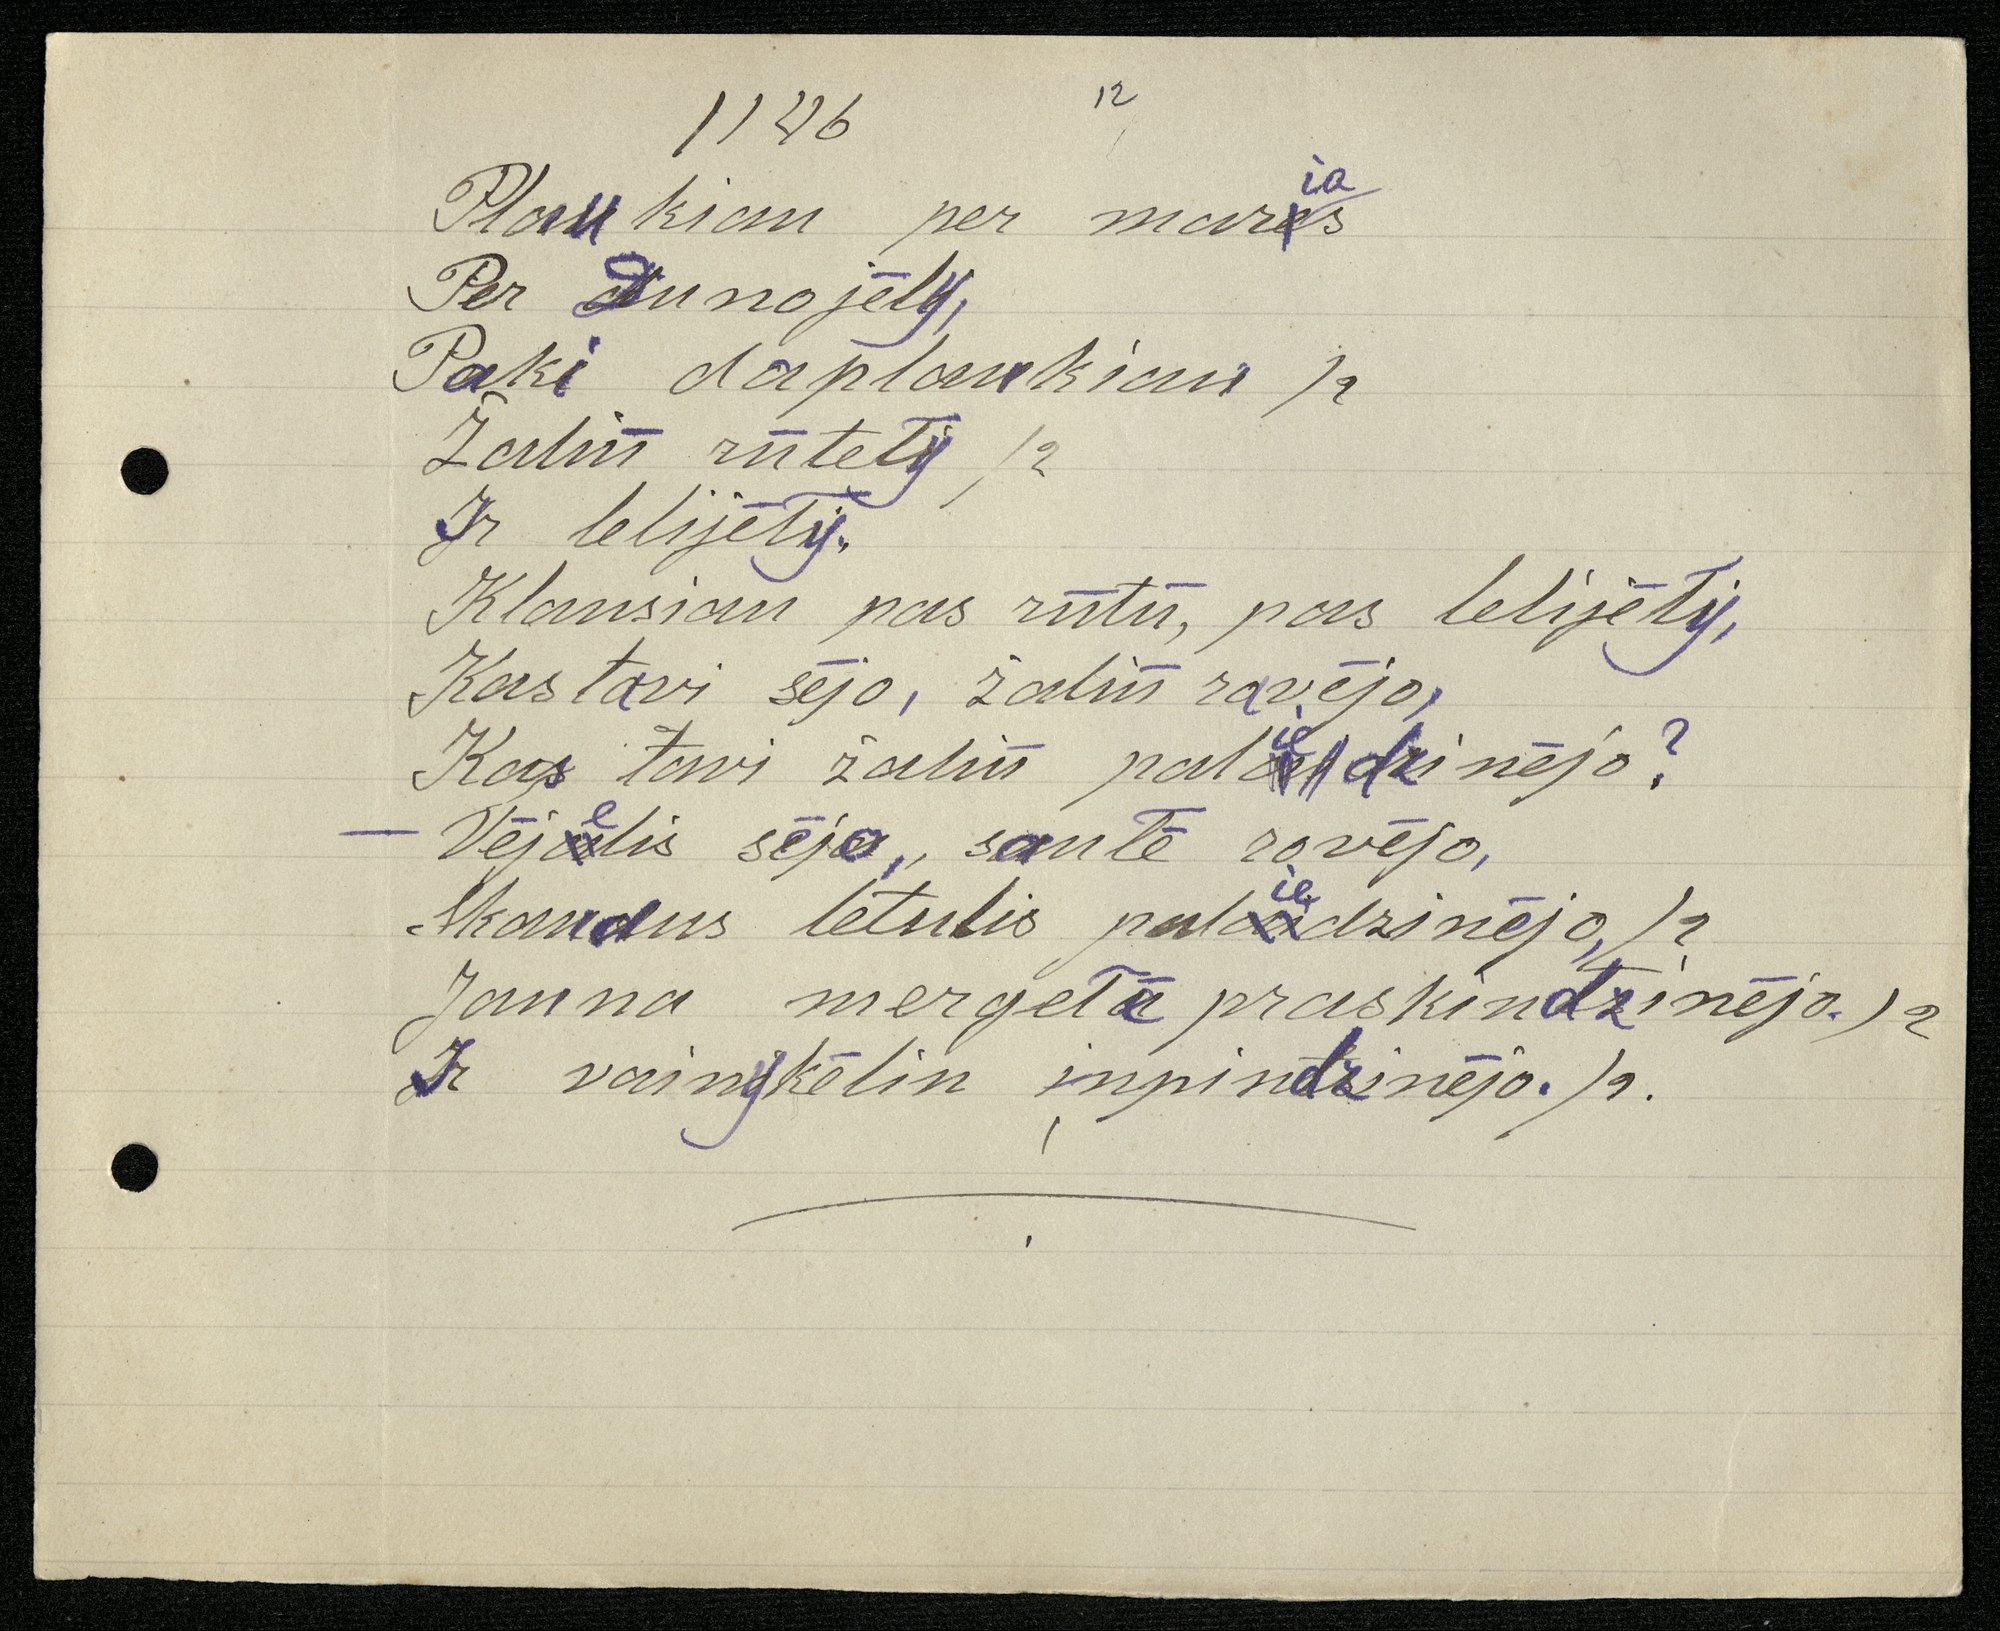 1146 12
Plaukiau per marias
Per Dunojėlį,
Paki daplaukiau )2
Žalių rūtelį )2
Ir lelijėlį.
Klausiau pas rūtū, pas lelijėlį,
Kas tavi sėjo, žaliū ravėjo,
Kas tavi žaliū paliedzinėjo?
— Vėjelis sėjo, saulė ravėjo,
Skaudus lėtulis paliedzinėjo, )2
Jauna mergela praskindzinėjo. )2
Ir vainykėlin inpindzinėjo. )2.